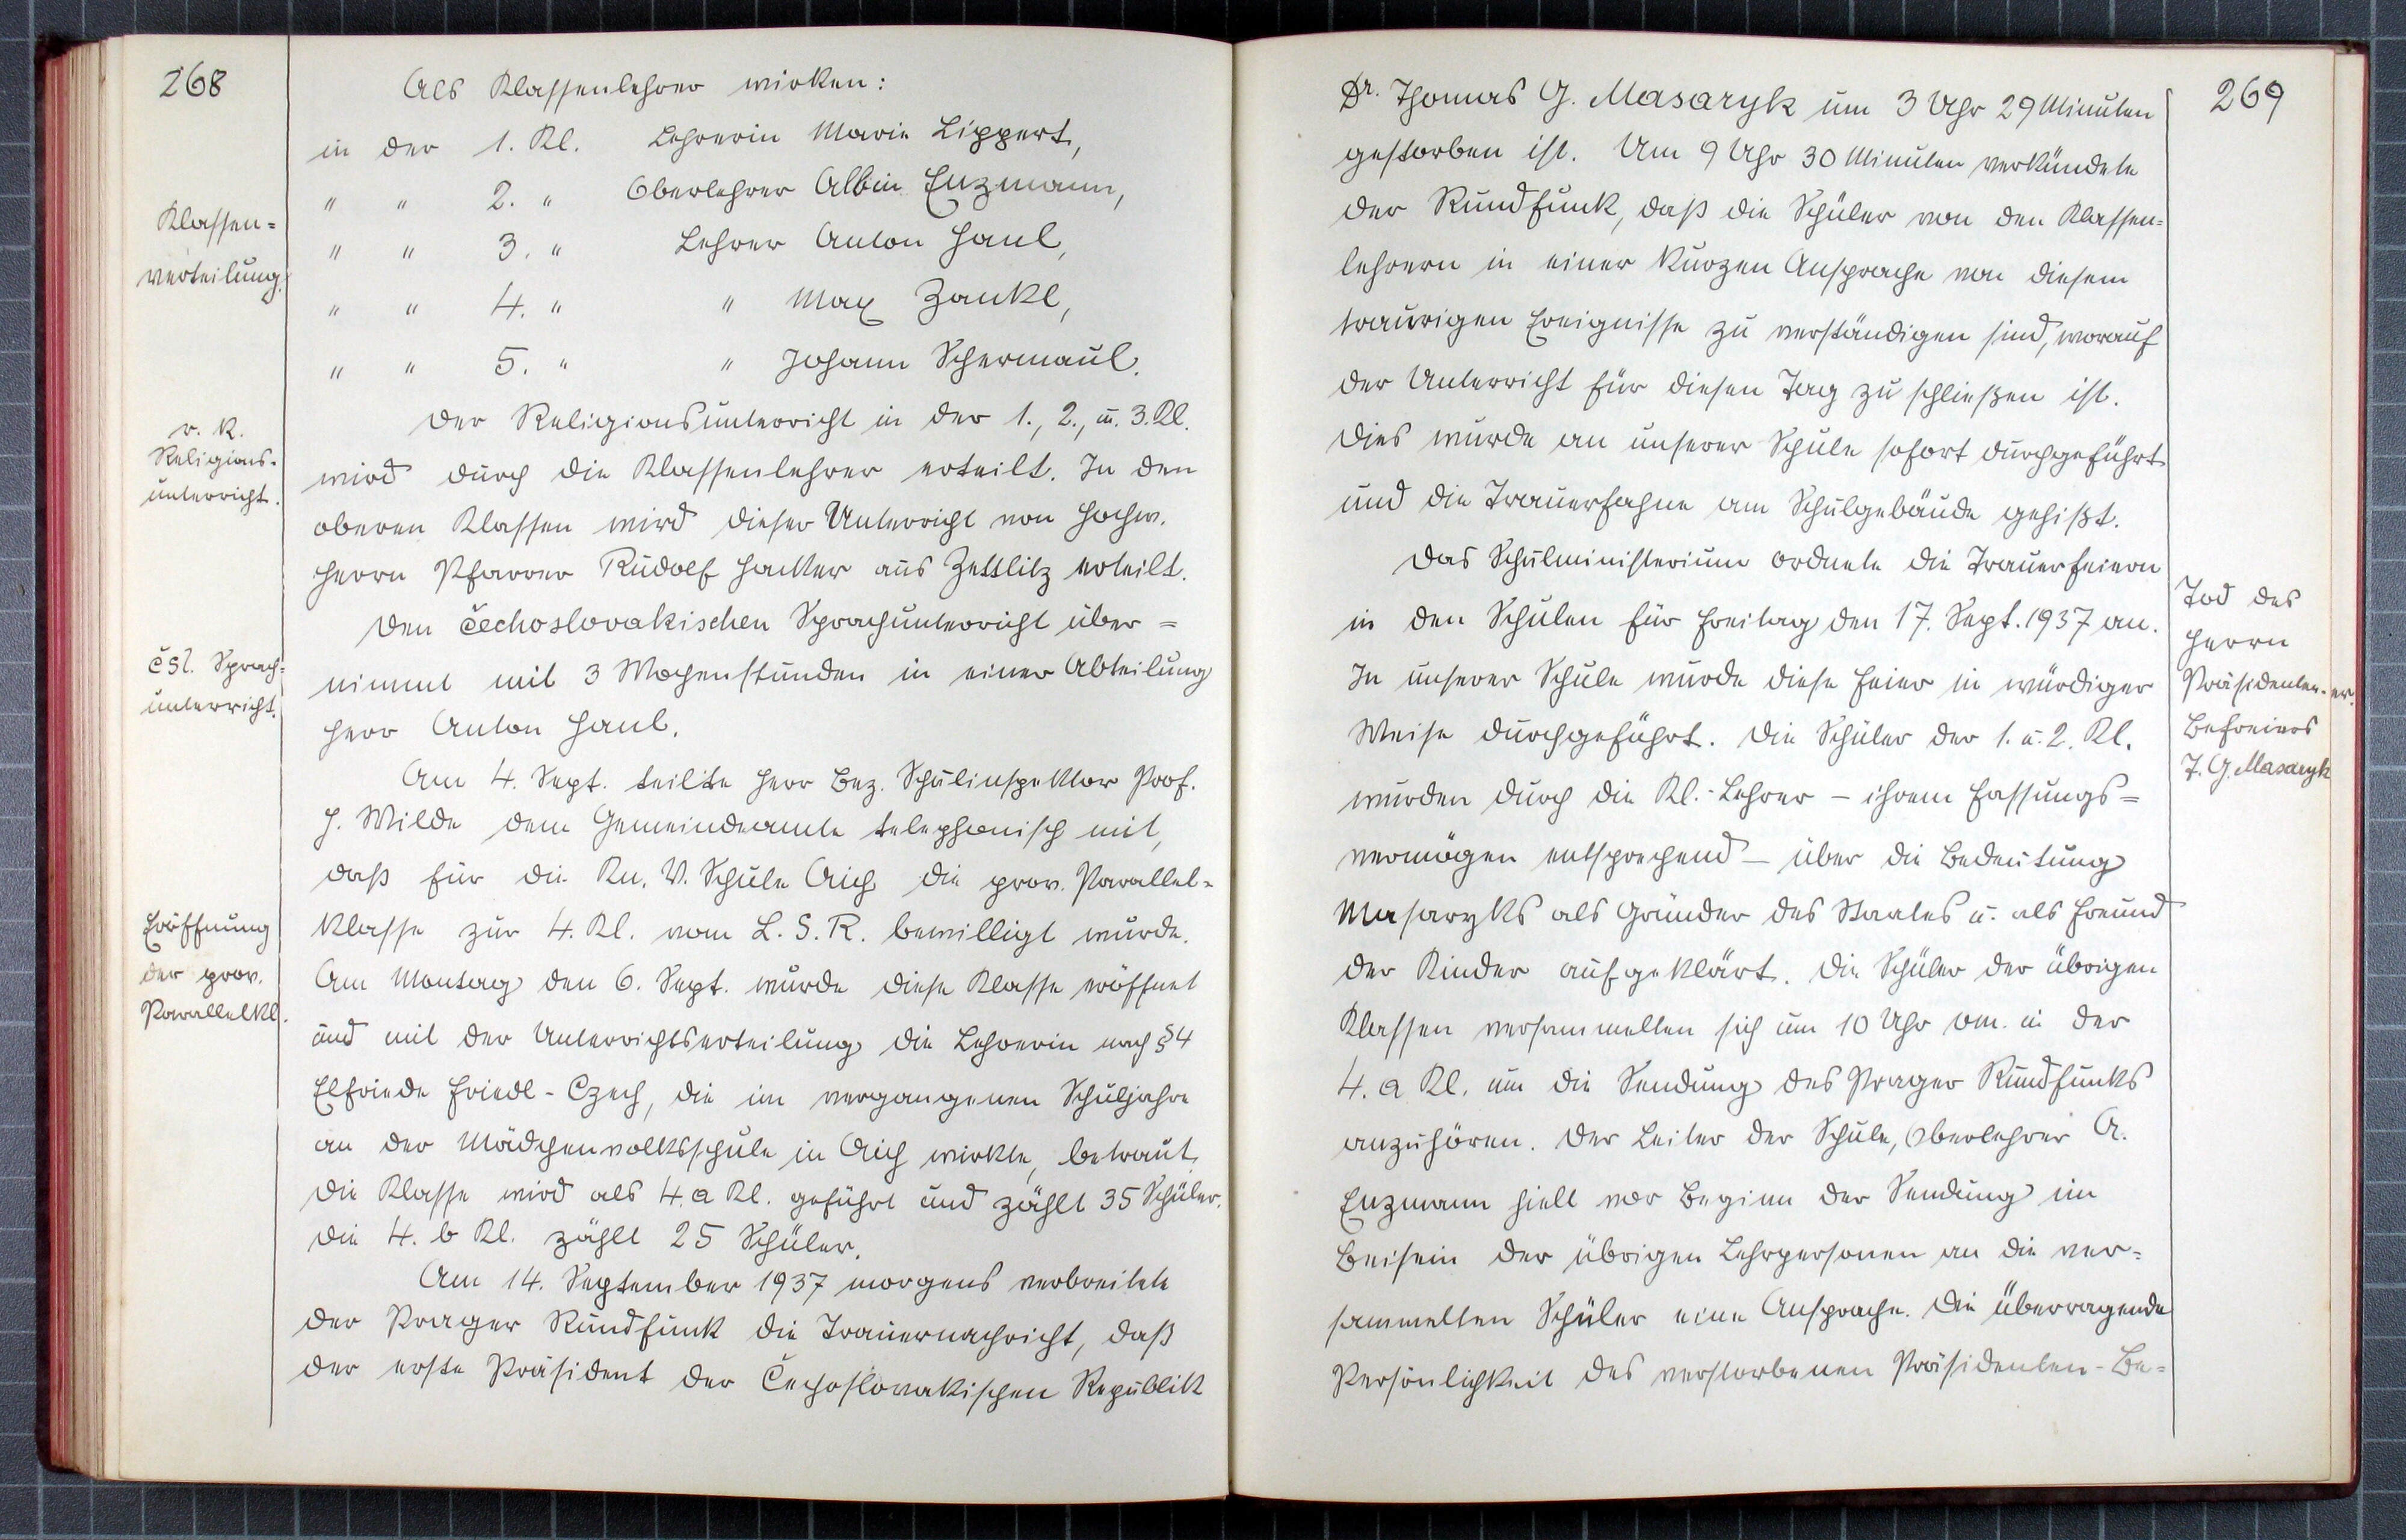 268
Als Klassenlehrer wirken:
in der 1. Kl. Lehrerin Marie Lippert,
" " 2. " Oberlehrer Albin Enzmann,
Klassen=
verteilung.
" " 3. " Lehrer Anton Haul,
" " 4. " " Max Zankl,
" " 5. " " Johann Schermaul.
r. k.
Religions-
unterricht.
Der Religionsunterricht in der 1., 2., u. 3. Kl.
wird durch die Klassenlehrer erteilt. In den
oberen Klassen wird dieser Unterricht von Hochw.
Herrn Pfarrer Rudolf Hacker aus Zettlitz erteilt.
čsl. Sprach-
unterricht.
Den čechoslovakischen Sprachunterricht über=
nimmt mit 3 Wochenstunden in einer Abteilung
Herr Anton Haul.
Am 4. Sept. teilte Herr Bez. Schulinspektor Prof.
H. Wilde dem Gemeindeamte telephonisch mit,
daß für die Kn. V. Schule Aich die prov. Parallel-
Eröffnung
der prov.
Parallelkl.
klasse zur 4. Kl. vom L. S. R. bewilligt wurde.
Am Montag den 6. Sept. wurde diese Klasse eröffnet
und mit der Unterrichtserteilung die Lehrerin nach § 4
Elfriede Friedl-Czech, die im vergangenen Schuljahre
an der Mädchenvolksschule in Aich wirkte, betraut.
Die Klasse wird als 4. a Kl. geführt und zählt 35 Schüler.
Die 4. b Kl. zählt 25 Schüler.
Am 14. September 1937 morgens verbreitete
der Prager Rundfunk die Trauernachricht, daß
der erste Präsident der Čechoslovakischen Republik
269
Dr. Thomas G. Masaryk um 3 Uhr 29 Minuten
gestorben ist. Um 9 Uhr 30 Minuten verkündete
der Rundfunk, daß die Schüler von den Klassen=
lehrern in einer kurzen Ansprache von diesem
traurigen Ereignisse zu verständigen sind, worauf
der Unterricht für diesen Tag zu schließen ist.
Dies wurde an unserer Schule sofort durchgeführt
und die Trauerfahne am Schulgebäude gehißt.
Das Schulministerium ordnete die Trauerfeiern
in den Schulen für Freitag den 17. Sept. 1937 an.
In unserer Schule wurde diese Feier in würdiger
Weise durchgeführt. Die Schüler der 1. u. 2. Kl.
Tod des
Herrn
Präsidenten-
Befreiers
T. G. Masaryk
wurden durch die Kl.-Lehrer – ihrem Fassungs=
vermögen entsprechend – über die Bedeutung
Masaryks als Gründer des Staates u. als Freund
der Kinder aufgeklärt. Die Schüler der übrigen
Klassen versammelten sich um 10 Uhr vm. in der
4. a Kl. um die Sendung des Prager Rundfunks
anzuhören. Der Leiter der Schule, Oberlehrer A.
Enzmann hielt vor Beginn der Sendung im
Beisein der übrigen Lehrpersonen an die ver=
sammelten Schüler eine Ansprache. Die überragende
Persönlichkeit des verstorbenen Präsidenten-Be=